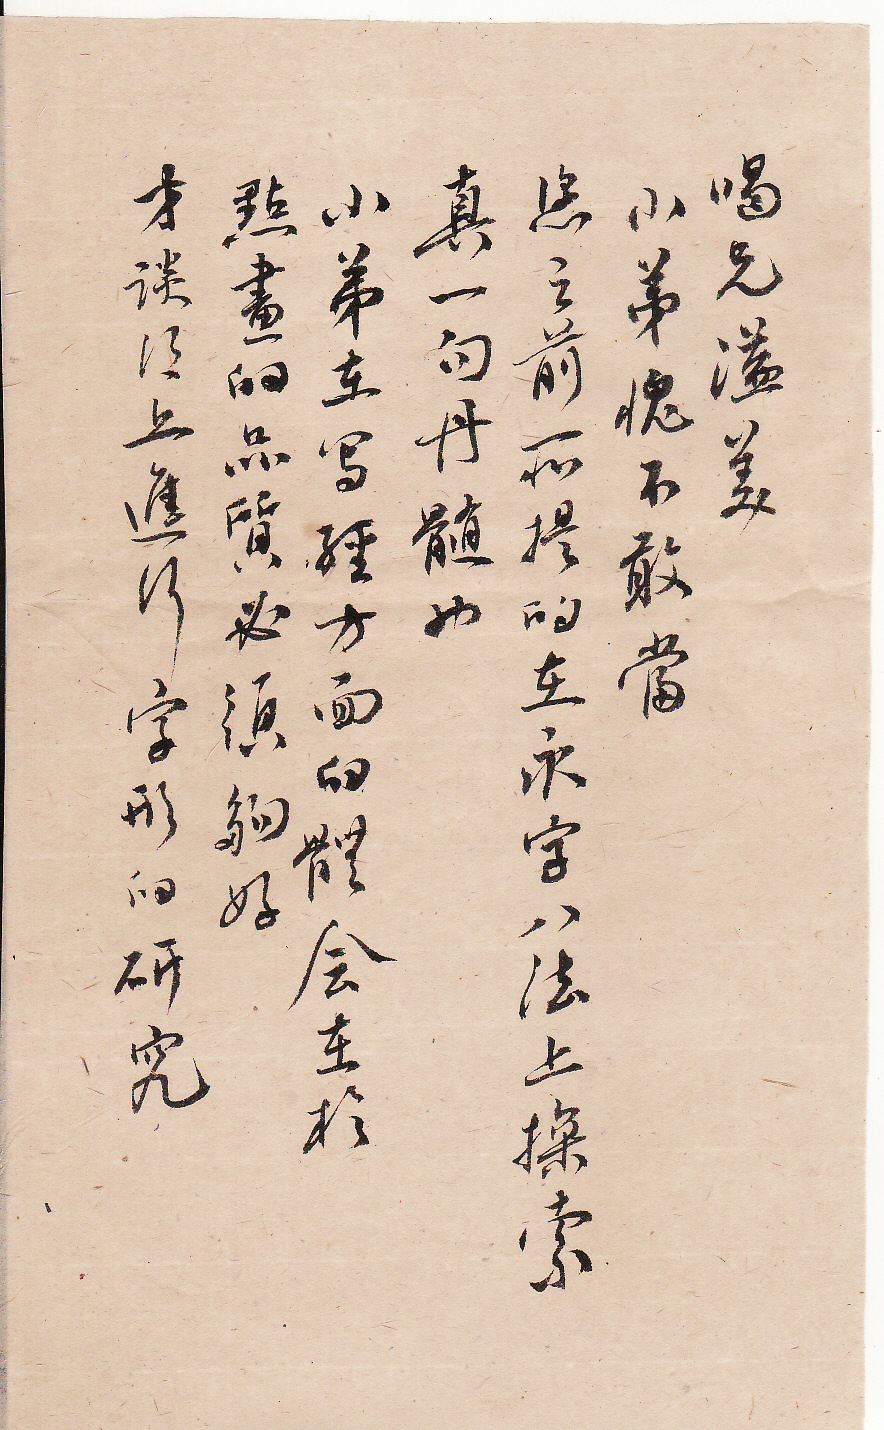 喝兄溢美
小弟愧不敢當
您之前所提的在永字八法上探索
真一句丹髓也
小弟在写經方面的體会在於
點畫的品質必須夠好
才談得上進行字形的研究